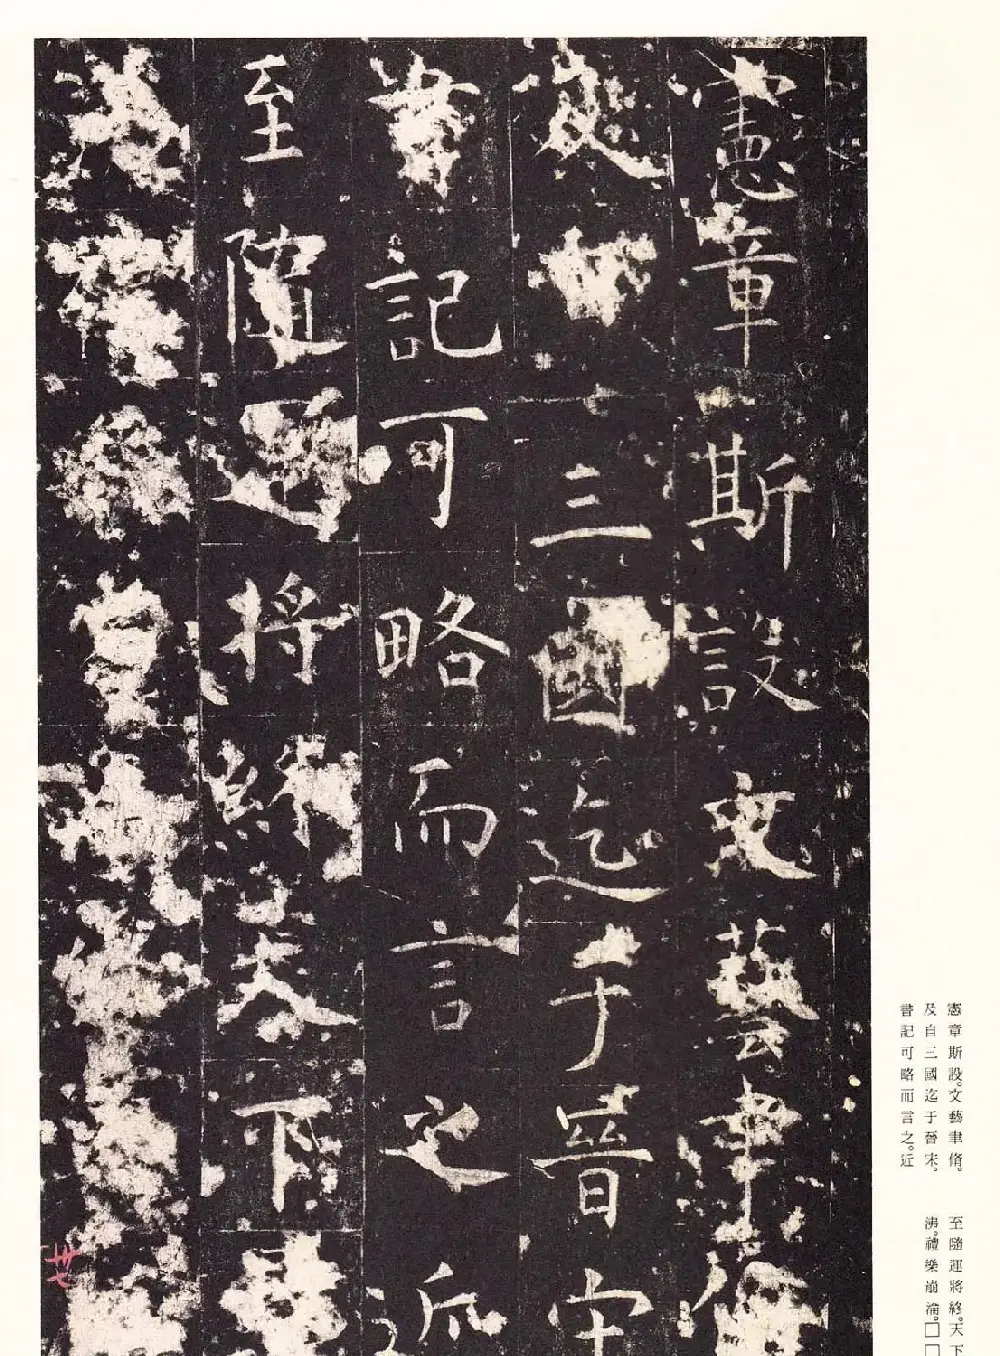 憲章斯設文藝聿脩
三國迄于晉宋
書記可略而言之近
至隨運將終天下
卅七
憲章斯設。文藝聿脩。
及自三國迄于晉宋。
書記可略而言之。近
至隨運將終。天下
沸。禮樂崩淪。□□